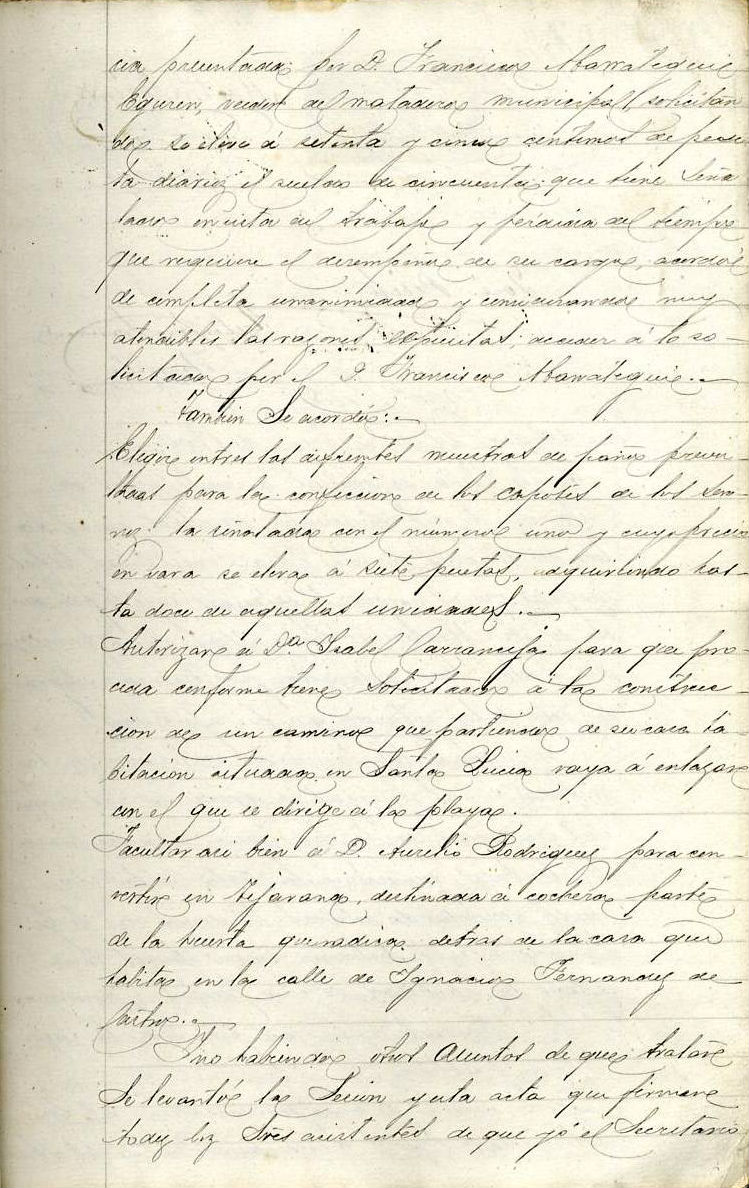 cia presentada por D. Francisco Abarrategui
Eguren, veedor del matadero municipal solicitan
do se eleve á setenta y cinco centimos de pese
ta diarios el sueldo de cincuenta que tiene seña
lado en vista del trabajo y perdida del tiempo
que requiere el desempeño de su cargo, acordóse
de completa unanimidad y considerando muy
atendibles las razones expuestas, acceder á lo so-
licitado por el D. Francisco Abarrategui.
Tambien Se acordó:
Elegir entre las diferentes muestras de paño presen-
tadas para la confeccion de los capotes de los sere-
nos la señalada con el número uno y cuyo precio
en vara se eleva á siete pesetas, adquiriendo has-
ta doce de aquellas unidades.
Autorizar á Da. Isabel Carranceja para que pro-
ceda conforme tiene solicitado á la construc-
cion de un camino que partiendo de su casa ha-
bitacion situada en Santa Lucia vaya á enlazar
con el que se dirige á la playa.
Facultar asi bien á D. Aurelio Rodriguez para con-
vertir en tejavana, destinada á cochera parte
de la huerta que radica detras de la casa que
habita en la calle de Ignacio Fernandez de
Castro.
Y no habiendo otros asuntos de que tratar
se levantó la Sesion y esta acta que firman
todos los Sres asistentes de que yó el Secretario